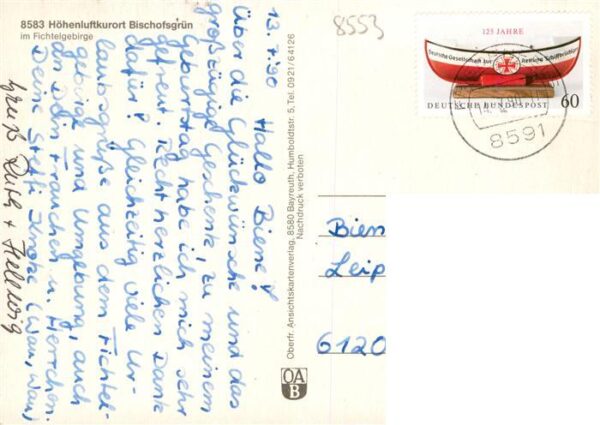 8583 Höhenluftkurort Bischofsgrün
im Fichtelgebirge
8553
125 JAHRE
Deutsche Gesellschaft zur Rettung Schiffbrüchiger
DEUTSCHE BUNDESPOST 60
8591
13. Hallo Biene!
Über die Glückwünsche und das
großzügige Geschenk, zu meinem
Geburtstag habe ich mich sehr
gefreut. Recht herzlichen Dank
dafür! Gleichzeitig viele Ur-
laubsgrüße aus dem Fichtel-
gebirge und Umgebung, auch
an Dein Frauchen u. Herrchen.
Deine Steffi (Wau, Wau)
Gruß Ruth + Hellwig
Oberfr. Ansichtskartenverlag, 8580 Bayreuth, Humboldtstr. 5, Tel. 0921/64126
Nachdruck verboten
OA
B
Bien
Leip
6120